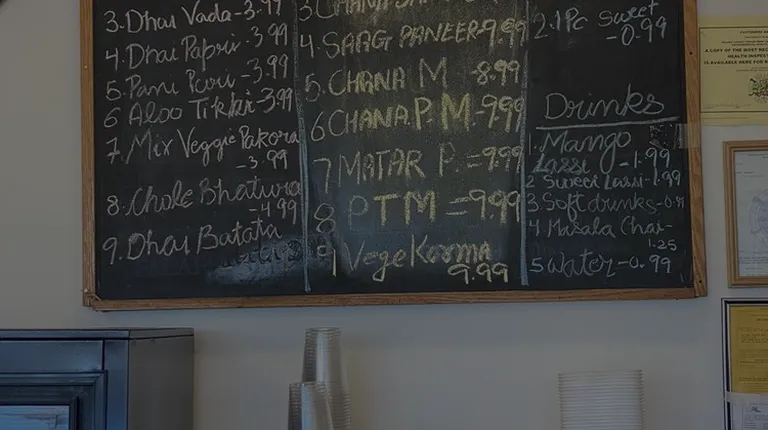 3. Dhai Vada - 3.99
4. Dhai Papri - 3.99
5. Pani Puri - 3.99
6 Aloo Tikki - 3.99
7. Mix Veggie Pakora
- 3.99
8. Chole Bhatura
- 4.99
9. Dhai Batata
4. SAAG PANEER - 9.99
5. CHANA M - 8.99
6 CHANA P. M. - 9.99
7 MATAR P. = 9.99
8 PTM = 9.99
9 Vege Korma
9.99
2. 1 Pc Sweet
- 0.99
Drinks
1. Mango
Lassi - 1.99
2 Sweet Lassi - 1.99
3 Soft drinks - 0.99
4 Masala Chai -
1.25
5 Water - 0.99
A COPY OF THE MOST
HEALTH INSPECT
IS AVAILABLE HERE FOR